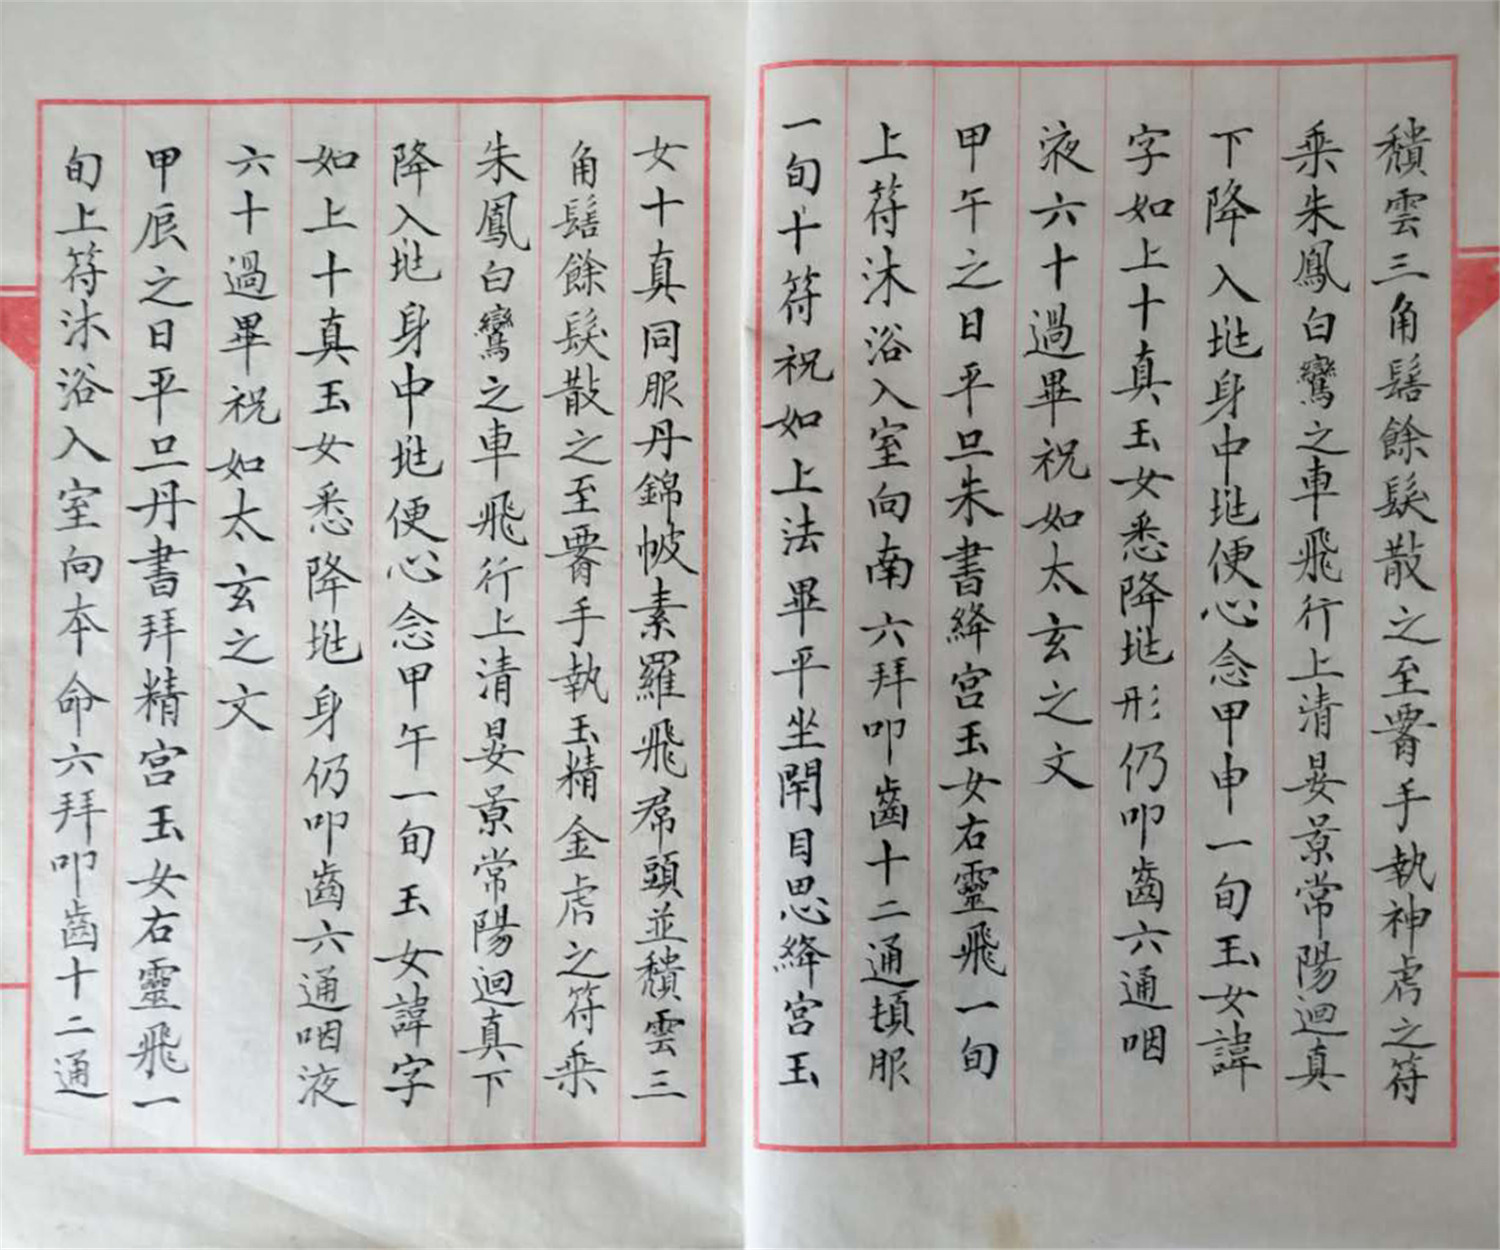 穨雲三角髻餘髮散之至霄手執神虎之符
乘朱鳳白鸞之車飛行上清晏景常陽迴真
下降入𡋯身中𡋯便心念甲申一旬玉女諱
字如上十真玉女悉降𡋯形仍叩齒六通咽
液六十過畢祝如太玄之文
甲午之日平旦朱書絳宮玉女右靈飛一旬
上符沐浴入室向南六拜叩齒十二通頓服
一旬十符祝如上法畢平坐閇目思絳宮玉
女十真同服丹錦帔素羅飛帬頭並穨雲三
角髻餘髮散之至霄手執玉精金虎之符乘
朱鳳白鸞之車飛行上清晏景常陽迴真下
降入𡋯身中𡋯便心念甲午一旬玉女諱字
如上十真玉女悉降𡋯身仍叩齒六通咽液
六十過畢祝如太玄之文
甲辰之日平旦丹書拜精宮玉女右靈飛一
旬上符沐浴入室向本命六拜叩齒十二通